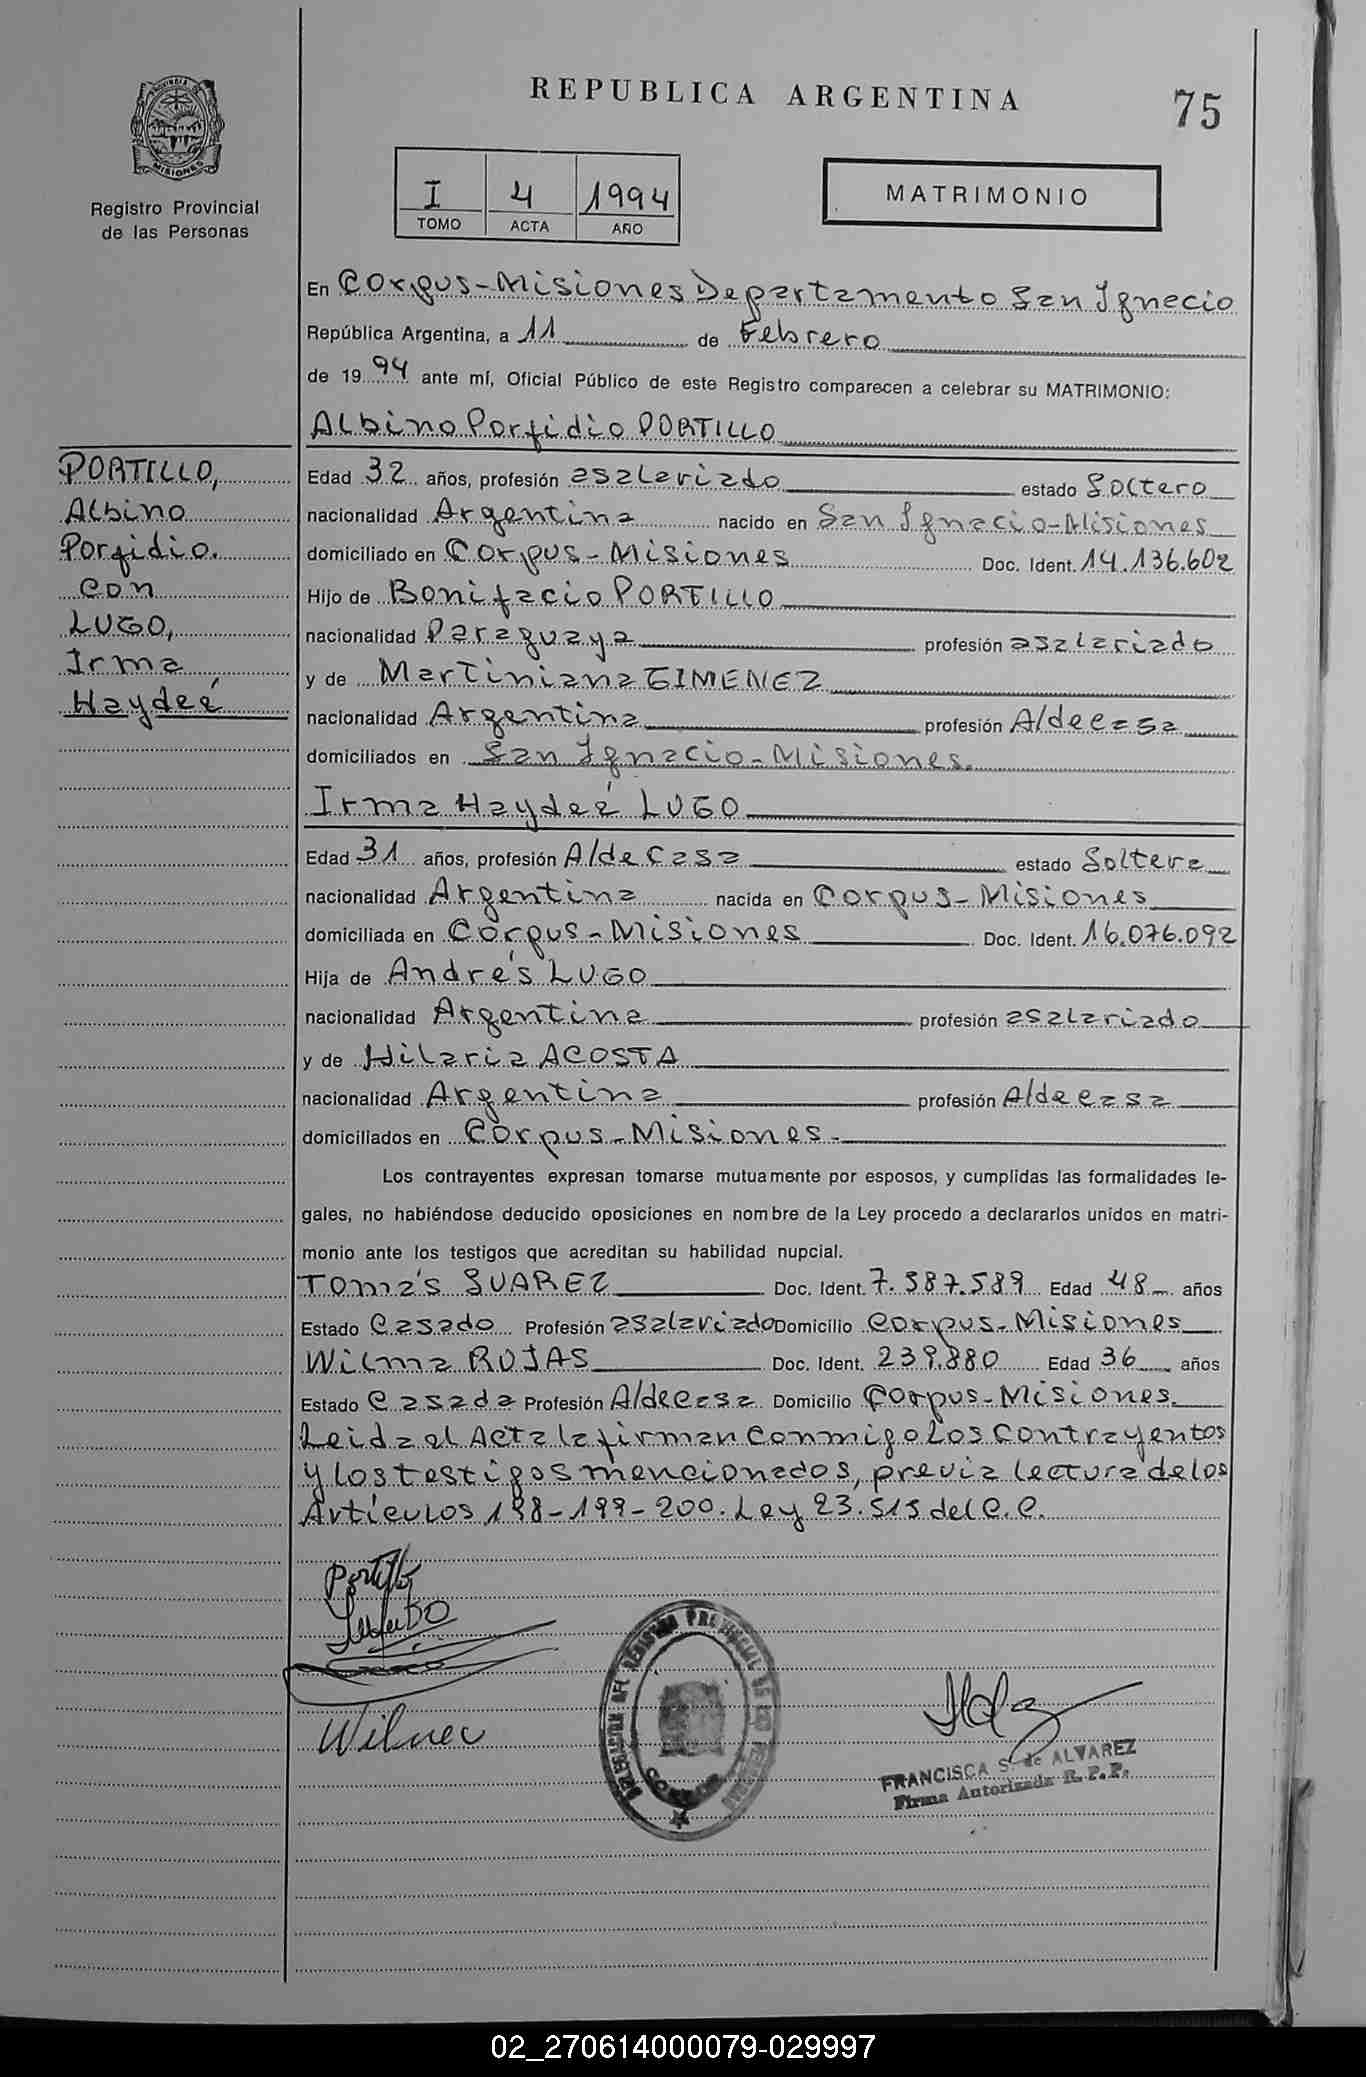 REPUBLICA ARGENTINA
75
PROVINCIA DE
MISIONES
Registro Provincial
de las Personas
I 4 1994
TOMO ACTA AÑO
MATRIMONIO
En Corpus-Misiones Departamento San Ignacio
República Argentina, a 11 de Febrero
de 1994 ante mí, Oficial Público de este Registro comparecen a celebrar su MATRIMONIO:
Albino Porfidio PORTILLO
PORTILLO,
Albino
Porfidio.
con
LUGO,
Irma
Haydeé
Edad 32 años, profesión asalariado estado Soltero
nacionalidad Argentina nacido en San Ignacio-Misiones
domiciliado en Corpus-Misiones Doc. Ident. 14.136.602
Hijo de Bonifacio PORTILLO
nacionalidad Paraguaya profesión asalariado
y de Martiniana GIMENEZ
nacionalidad Argentina profesión Aldecasa
domiciliados en San Ignacio-Misiones.
Irma Haydeé LUGO
Edad 31 años, profesión Aldecasa estado Soltera
nacionalidad Argentina nacida en Corpus-Misiones
domiciliada en Corpus-Misiones Doc. Ident. 16.076.092
Hija de Andrés LUGO
nacionalidad Argentina profesión asalariado
y de Hilaria ACOSTA
nacionalidad Argentina profesión Aldecasa
domiciliados en Corpus-Misiones.
Los contrayentes expresan tomarse mutuamente por esposos, y cumplidas las formalidades le-
gales, no habiéndose deducido oposiciones en nombre de la Ley procedo a declararlos unidos en matri-
monio ante los testigos que acreditan su habilidad nupcial.
Tomás SUAREZ Doc. Ident. 7.587.589 Edad 48 años
Estado Casado Profesión asalariado Domicilio Corpus-Misiones
Wilma ROJAS Doc. Ident. 239.880 Edad 36 años
Estado Casada Profesión Aldecasa Domicilio Corpus-Misiones.
Leida el Acta la firman conmigo Los contrayentes
y los testigos mencionados, previa lectura de los
Artículos 198-199-200. Ley 23.515 del C.C.
Portillo
Wilma
DELEGACION DEL REGISTRO PROVINCIAL DE LAS PERSONAS
CORPUS
FRANCISCA S. de ALVAREZ
Firma Autorizada R.P.P.
02_270614000079-029997